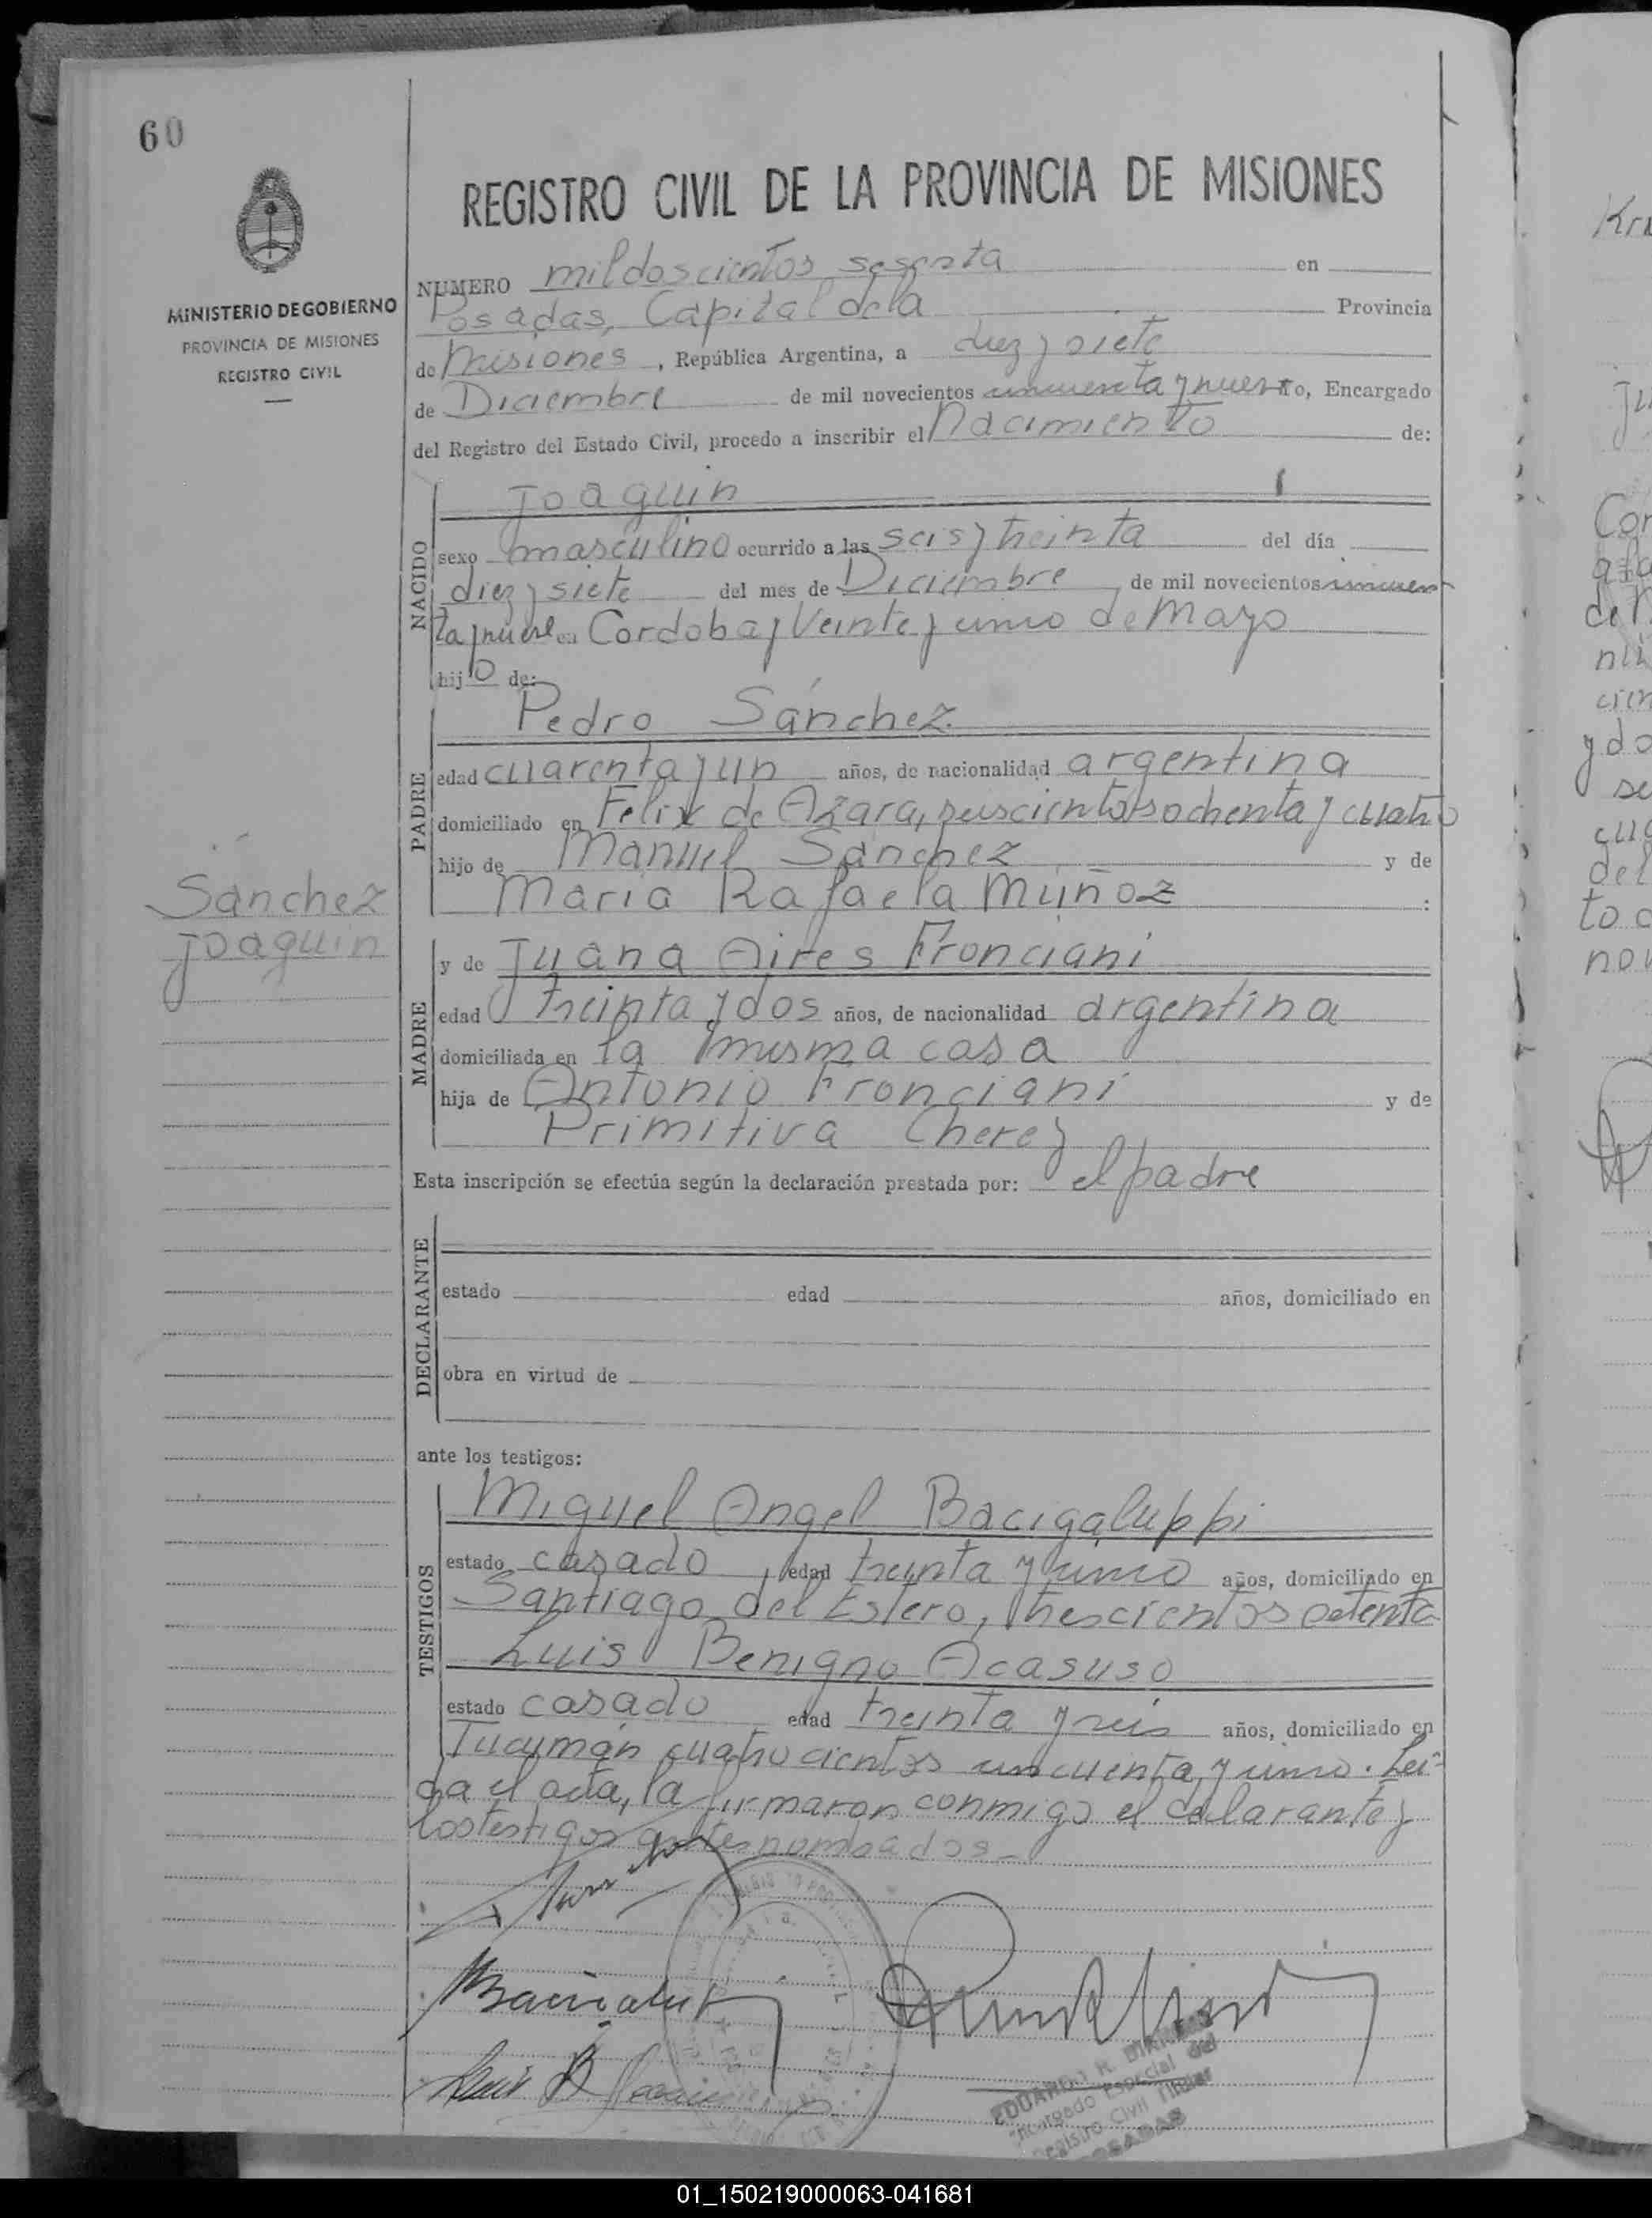 60
MINISTERIO DE GOBIERNO
PROVINCIA DE MISIONES
REGISTRO CIVIL
REGISTRO CIVIL DE LA PROVINCIA DE MISIONES
NUMERO mil doscientos sesenta en
Posadas, Capital de la Provincia
de Misiones, República Argentina, a diez y siete
de Diciembre de mil novecientos cincuenta y nueve yo, Encargado
del Registro del Estado Civil, procedo a inscribir el Nacimiento de:
NACIDO
Joaquin
sexo masculino ocurrido a las seis y treinta del día
diez y siete del mes de Diciembre de mil novecientos cincuen
ta y nueve en Cordoba y Veinte y uno de Mayo
hijo de:
PADRE
Pedro Sánchez
edad cuarenta y un años, de nacionalidad argentina
domiciliado en Felix de Azara, seiscientos ochenta y cuatro
hijo de Manuel Sánchez y de
Maria Rafaela Muñoz :
Sanchez
Joaquin
MADRE
y de Juana Aires Fronciani
edad treinta y dos años, de nacionalidad argentina
domiciliada en la misma casa
hija de Antonio Fronciani y de
Primitiva Cherey
Esta inscripción se efectúa según la declaración prestada por: el padre
DECLARANTE
estado edad años, domiciliado en
obra en virtud de
ante los testigos:
TESTIGOS
Miguel Angel Bacigaluppi
estado casado, edad treinta y uno años, domiciliado en
Santiago del Estero, trescientos setenta
Luis Benigno Acasuso
estado casado edad treinta y seis años, domiciliado en
Tucumán cuatrocientos cincuenta y uno. Lei-
da el acta, la firmaron conmigo el declarante y
los testigos antes nombrados.-
EDUARDO R.
Encargado Especial del
Registro Civil Titular
POSADAS
01_150219000063-041681